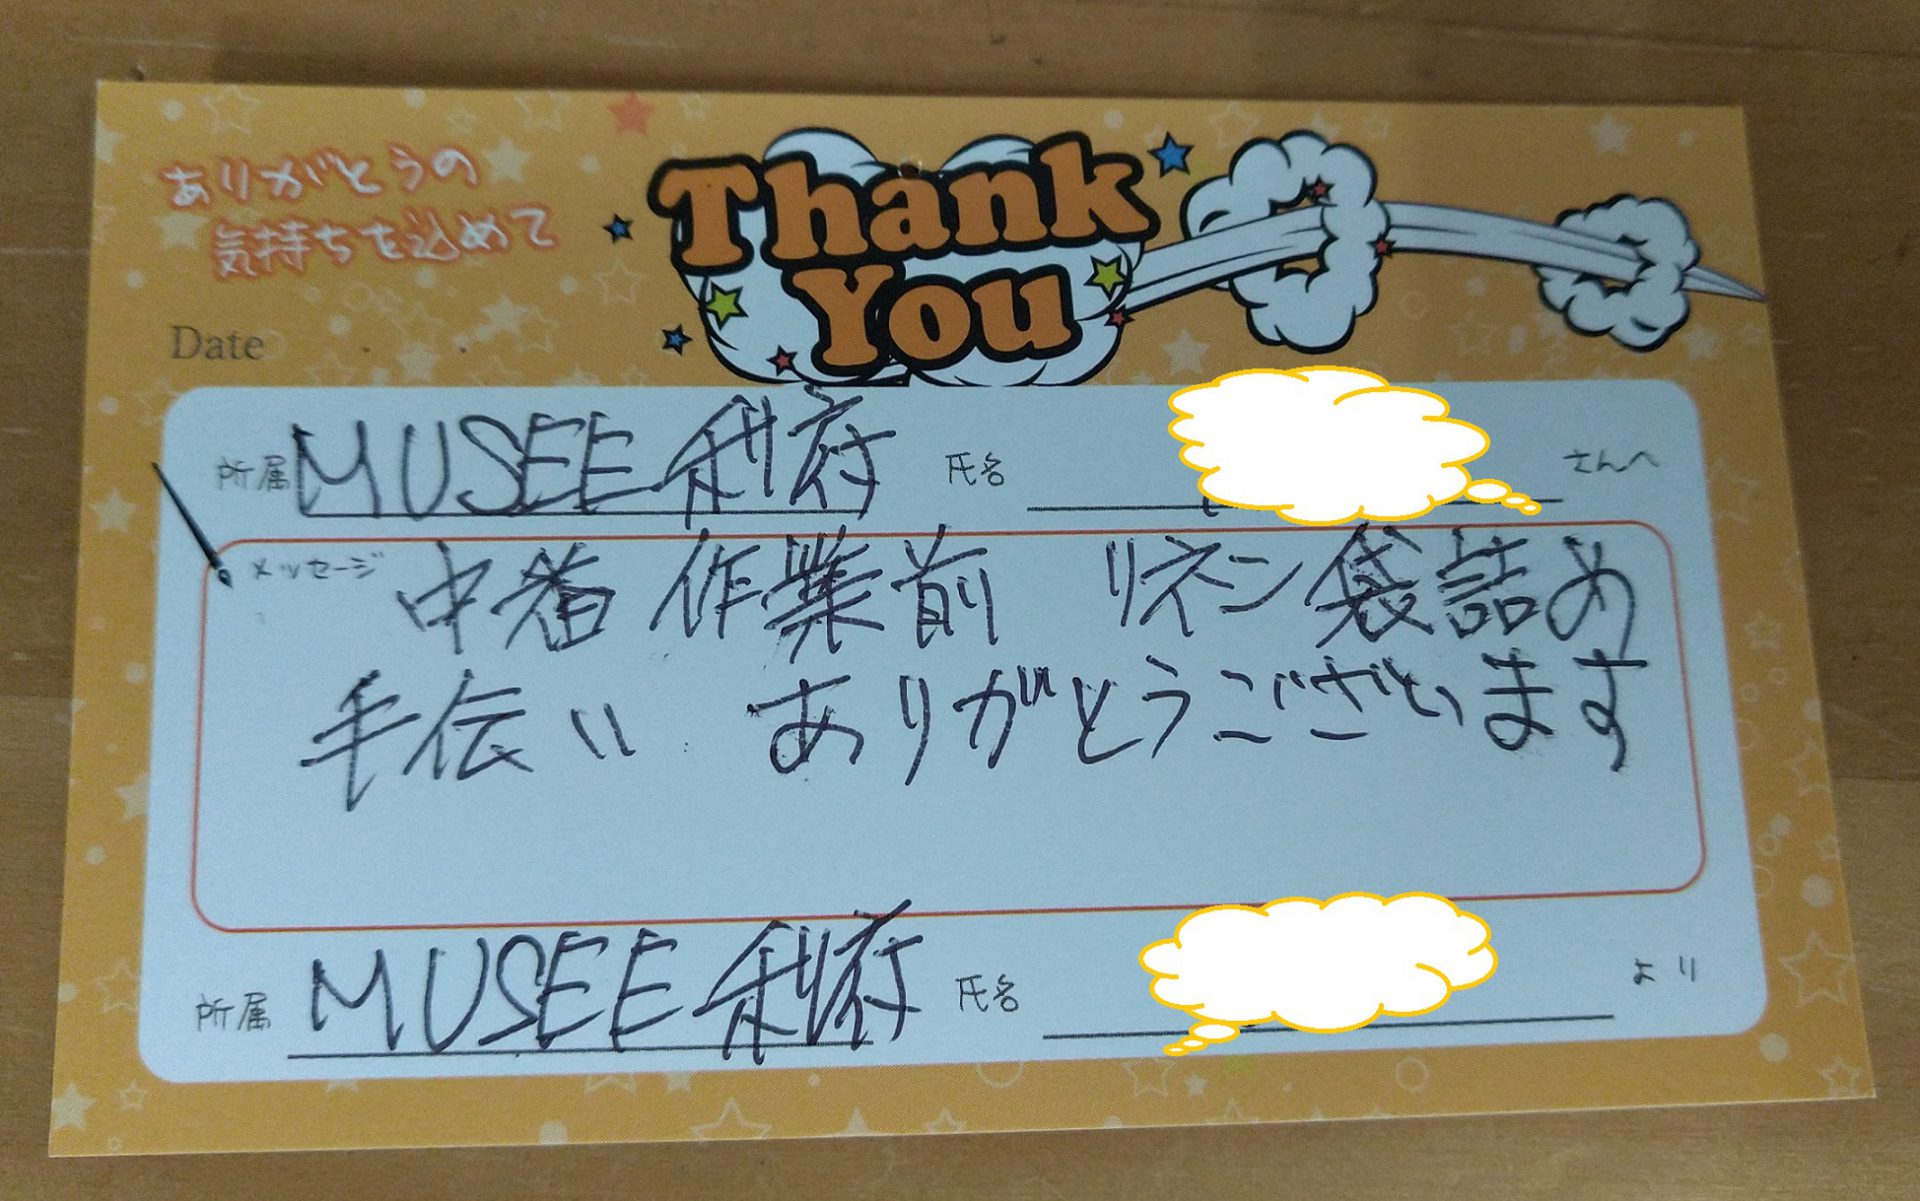 ありがとうの
気持ちを込めて
Thank
You
Date
所属 MUSEE 利府 氏名 さんへ
メッセージ
中番 作業前 リネン袋詰め
手伝い ありがとうございます
所属 MUSEE 利府 氏名 より